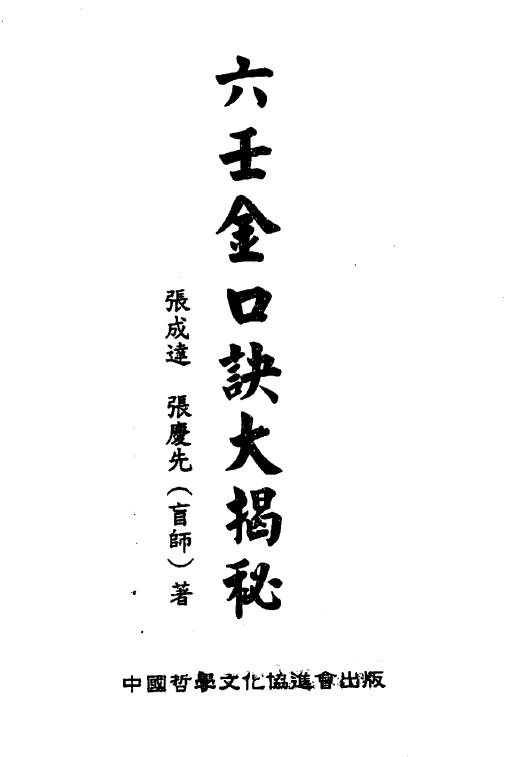 六壬金口訣大揭秘
張成達 張慶先（盲師）著
中國哲學文化協進會出版